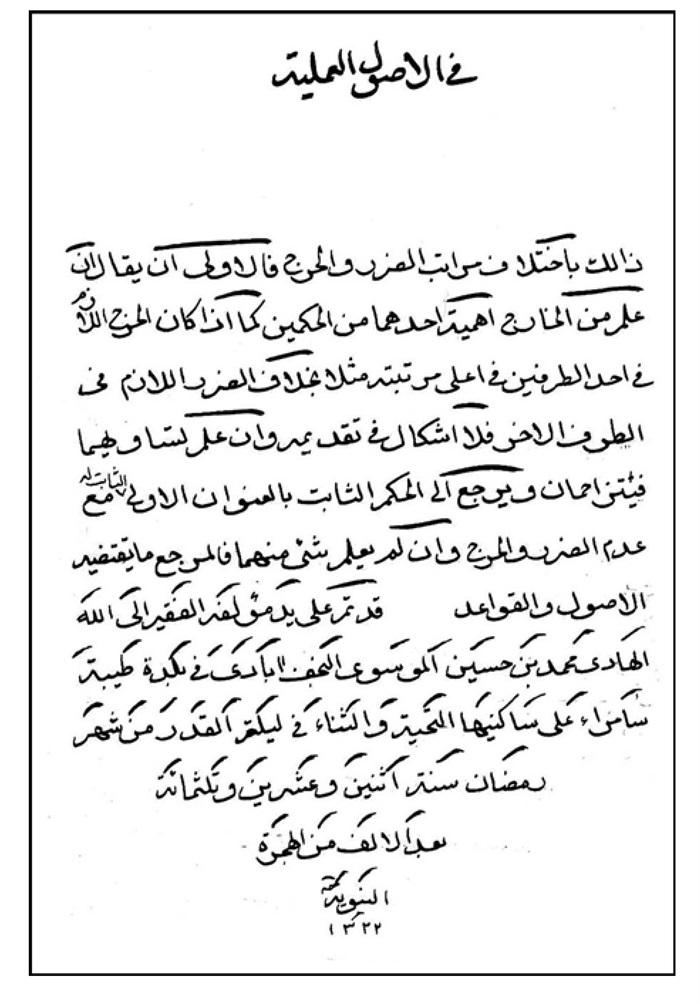 في الاصول العملية
ذالك باختلاف مراتب الضرر والحرج فالاولى ان يقال ان
علم من الخارج اهمية احدهما من الحكمين كما اذا كان الحرج اللازم
في احد الطرفين في اعلى مرتبته مثلا بخلاف الضرر اللازم في
الطرف الاخر فلا اشكال في تقديمه وان علم تساويهما
فيتزاحمان ويرجع الى الحكم الثابت بالعنوان الاولى الثابت له مع
عدم الضرر والحرج وان لم يعلم شئ منهما فالمرجع ما يقتضيه
الاصول والقواعد قد تم على يد مؤلفه الفقير الى الله
الهادى محمد بن حسين الموسوى النجف ابادى في بلدة طيبة
سامراء على ساكنيها التحية والثناء في ليلة القدر من شهر
رمضان سنة اثنين وعشرين وثلثمائة
بعد الالف من الهجرة
النبوية
١٣٢٢